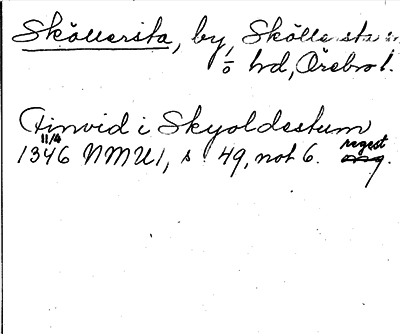 Sköllersta, by, Skölle sta
o hd, Örebro l.
Finvid i Skyoldestum
11/4
1346 NMU 1, s. 49, not 6. regest
orig.